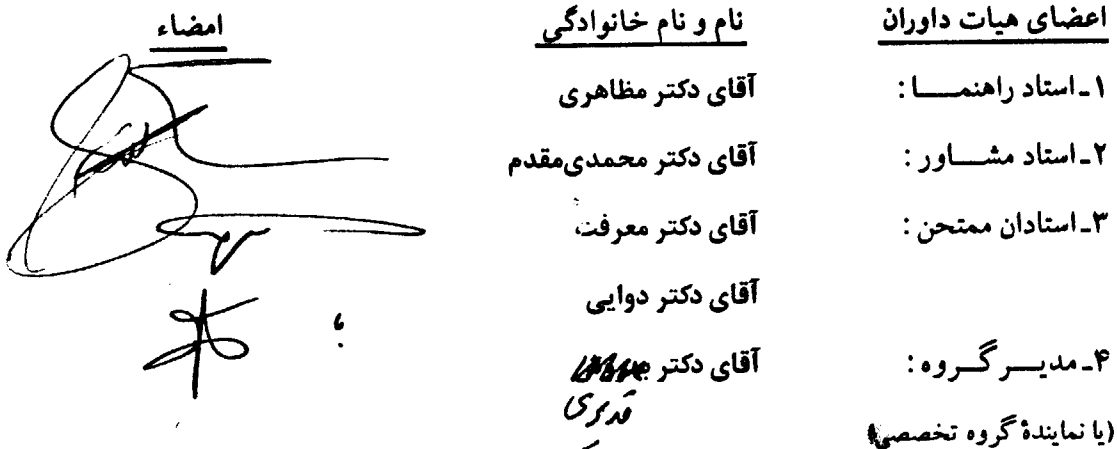 اعضای هیات داوران نام و نام خانوادگی امضاء
۱ـ استاد راهنمـــــا : آقای دکتر مظاهری
۲ـ استاد مشـــاور : آقای دکتر محمدی‌مقدم
۳ـ استادان ممتحن : آقای دکتر معرفت
آقای دکتر دوایی
۴ـ مدیـــر گـــروه : آقای دکتر
قدیری
(یا نمایندهٔ گروه تخصصی)